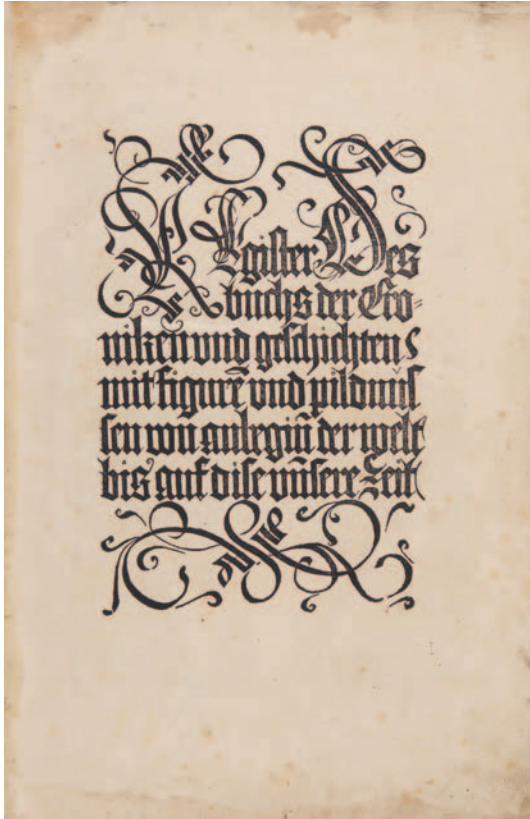 REgister Des
buchs der Cro⸗
niken und geschichten
mit figurē und pildnüs
sen von anbegiñ der welt
bis auf dise vñsere Zeit